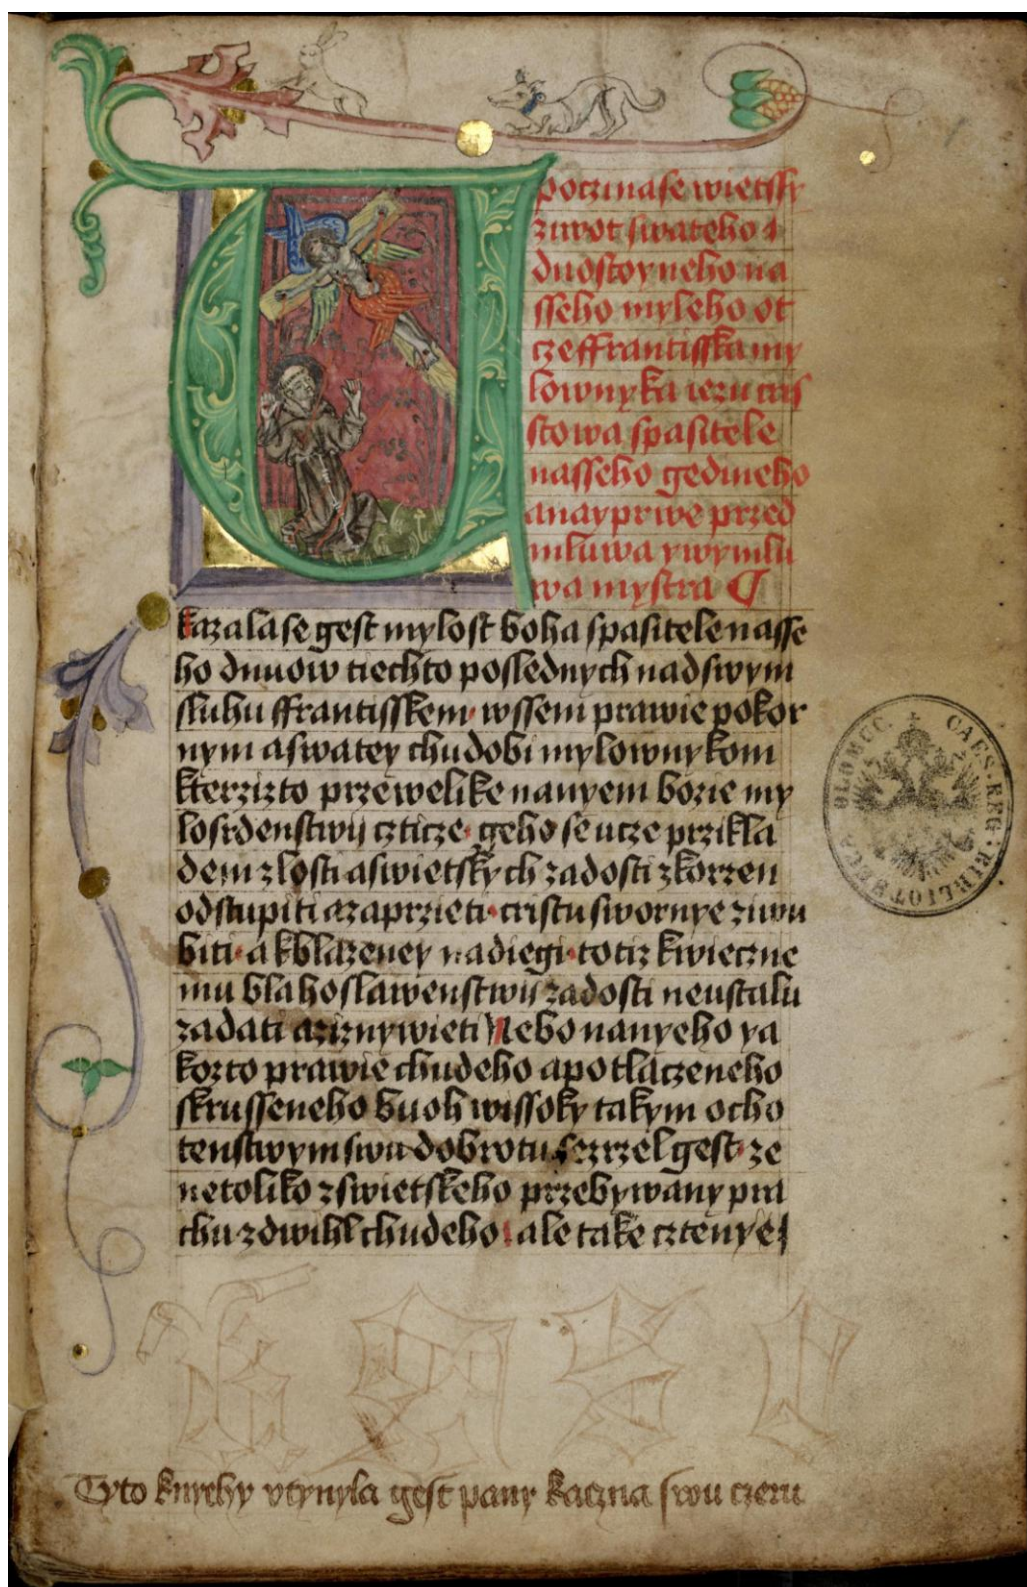 poczinase wietssy
ziwot swateho a
duostoyneho na
sseho myleho ot
cze ffrantisska my
lownyka iezu cris
stowa spasitele
nasseho gedineho
anayprwe przed
mluwa ywymlu
wa mystra
U
kazalase gest mylost boha spasitele nasse
ho dnuow tiechto poslednych nad swym
sluhu ffrantisskem wssem prawie pokor
nym aswatey chudobi mylownykom
kterzizto przewelike nanyem bozie my
losrdenstwij czticze geho se ucze przikla
dem zlosti aswietskych zadosti zkorzen
odstupiti azaprzieti cristu swornye ziwu
biti a kblazeney nadiegi totiz kwieczne
mu blahoslawenstwij zadosti neustalu
zadati aziznywieti Nebo nanyeho ya
kozto prawie chudeho apotlaczeneho
skrusseneho buoh wissoky takym ocho
tenstwym swu dobrotu sezrzel gest ze
netoliko zswietskeho przebywany pra
chu zdwihl chudeho ale take cztenye
Tyto knyehy vczynyla gest pany kaczna swu czeru
OLOMUCC. CAES. REG. BIBLIOTHECA